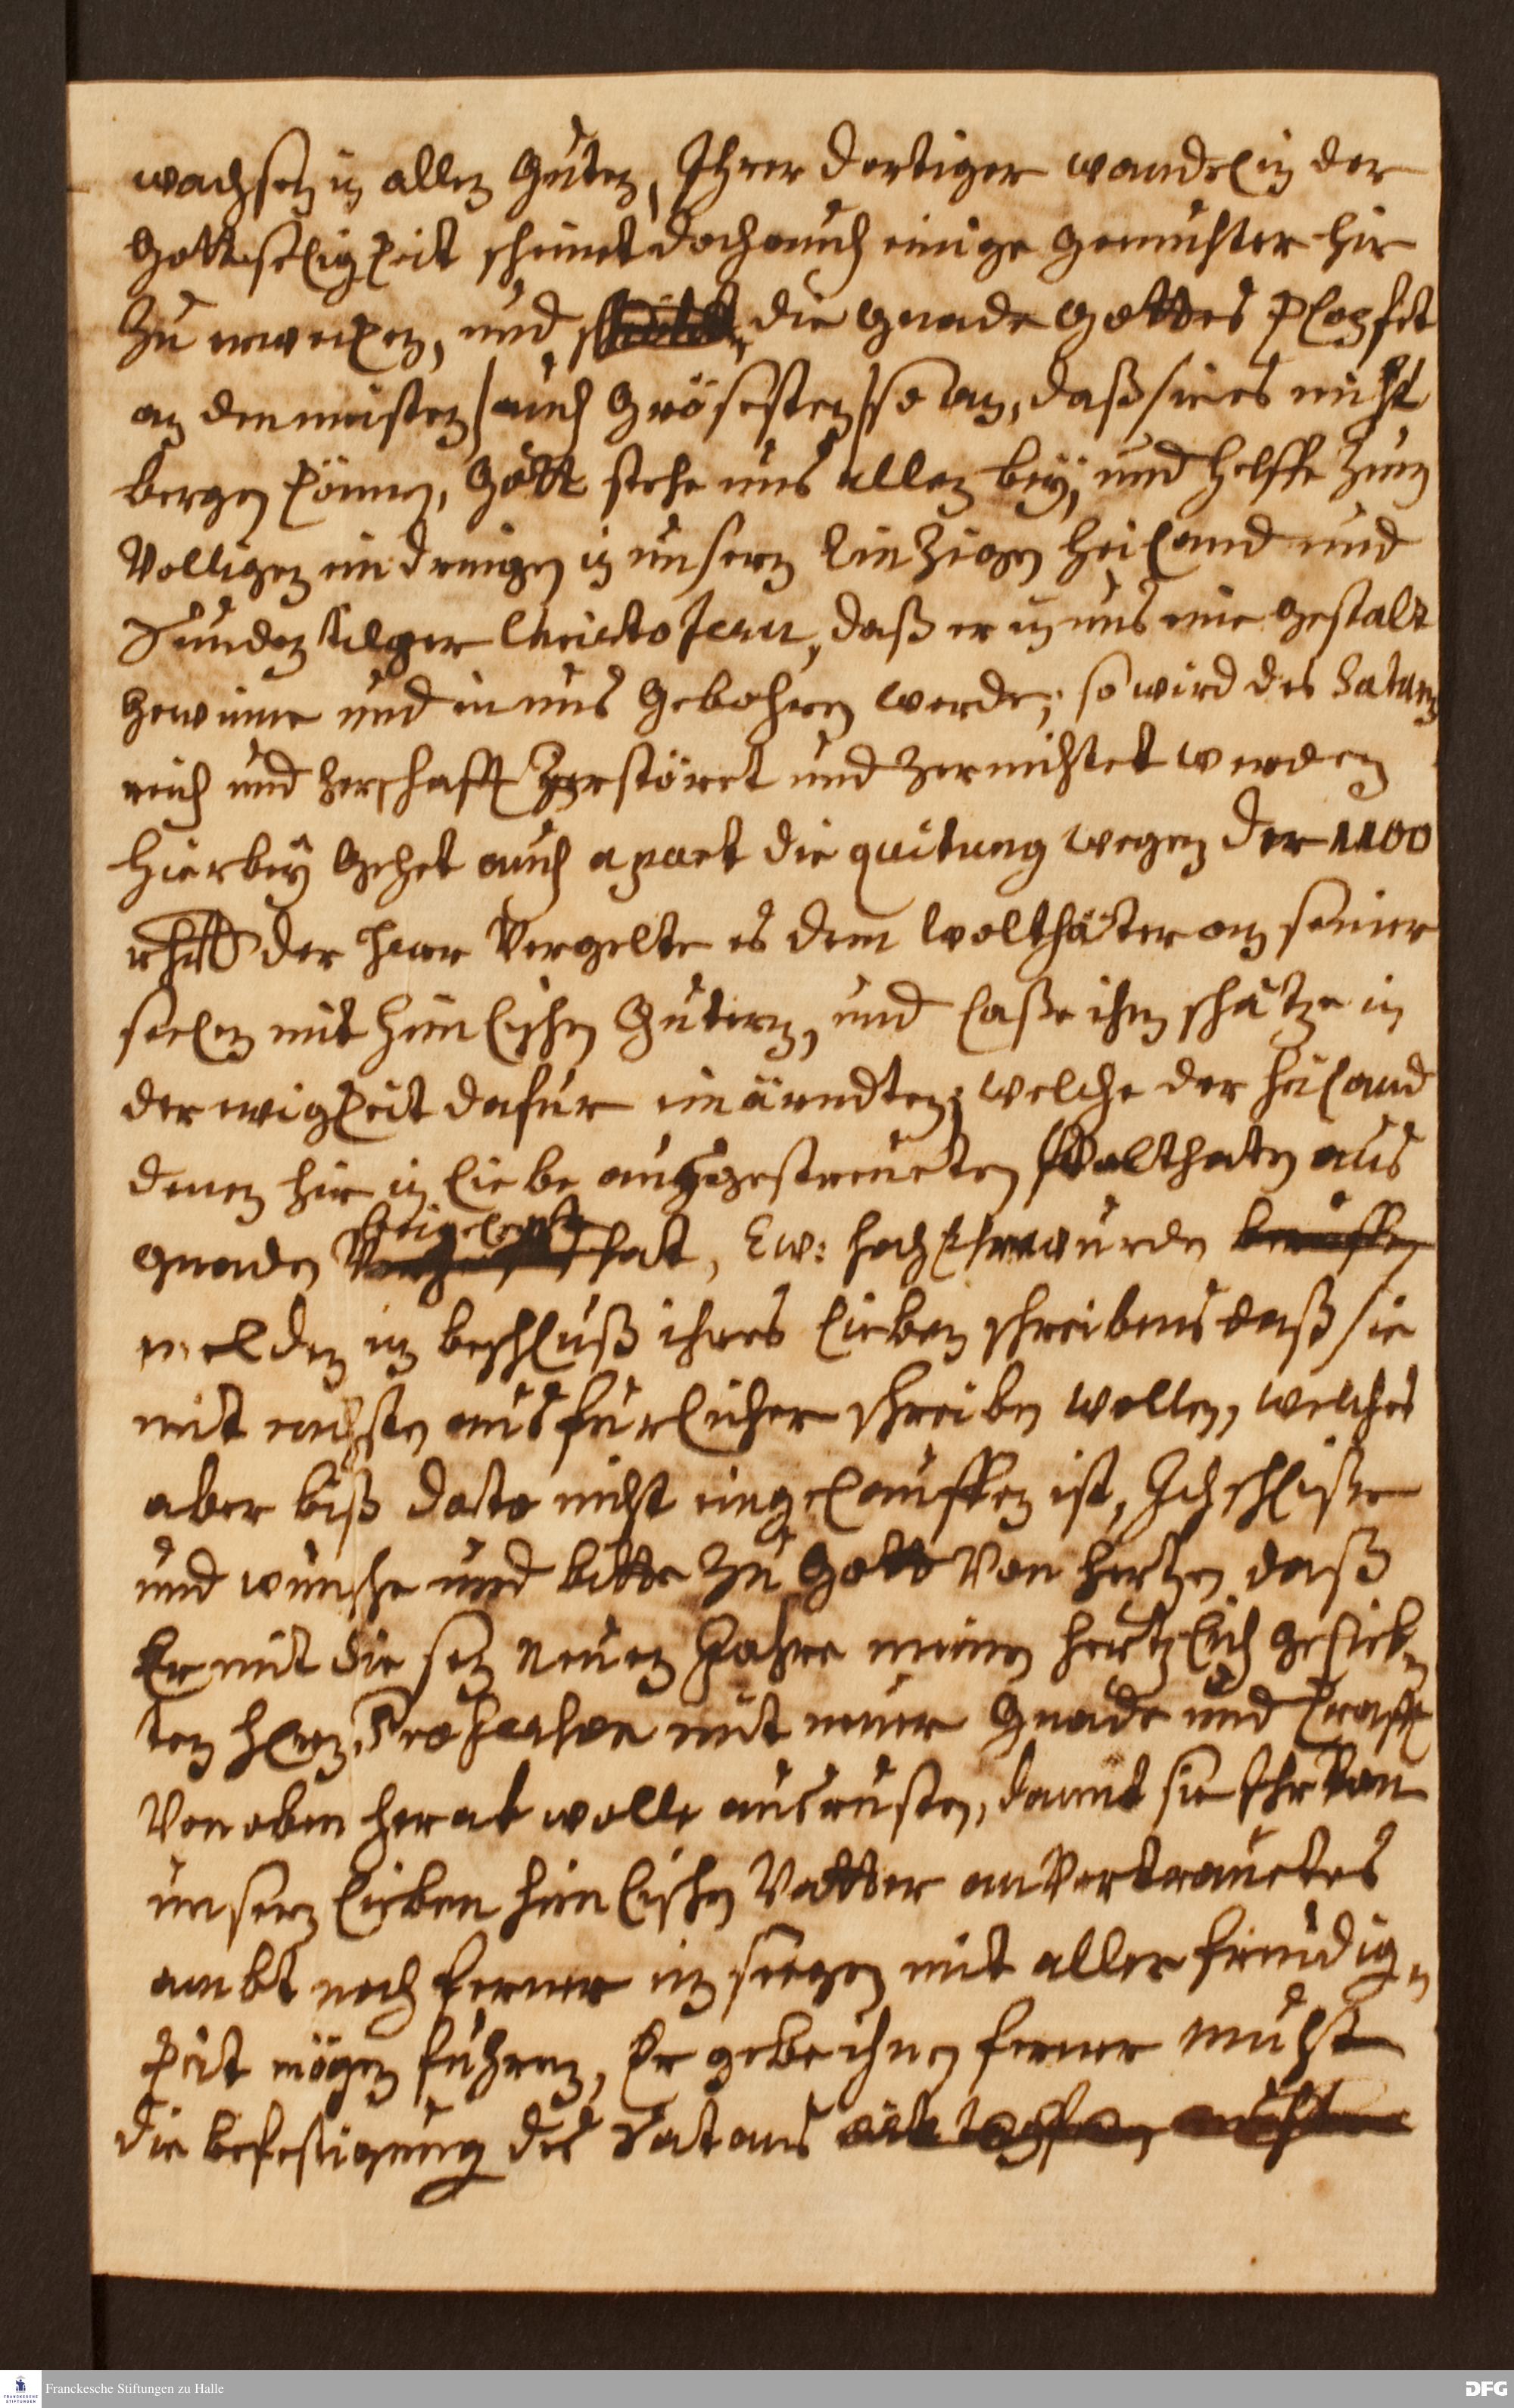 wachsen in allen Guten, Ihrer dortiger wandel in der
Gottseligkeit scheinet doch auch einige gemühter hir
zu erwecken, und die gnade Gottes klopfet
an den meisten /auch Grösesten/ so an, daß sie es nicht
bergen können, Gott stehe uns allen beÿ, und helffe zum
Volligen eindringen in unsern Einzigen Heiland und
Sunden tilger Christo Jesu, daß er in uns eine gestalt
gewinne und in uns gebohren werde, so wird des Satans
reich und herschafft zerstöret und zernichtet werden
Hierbeÿ gehet auch apart die quitung wegen der 1100
rthl der Herr Vergelte es dem wolthäter an seiner
seelen mit himlischen Gütern, und laße ihn schätze in
der ewigkeit dafür einärndten, welche der Heiland
denen hir in liebe außgestreueten Wolthaten aus
gnaden beigelegt hat, Ew: HochEhrwürden beruffen
melden in beschluß ihres lieben schreibens daß sie
mit nachsten ausfürlicher schreiben wollen, welches
aber biß dato nicht eingelauffen ist, Ich schliße
und wunsche und bitte zu Gott von hertzen daß
Er mit diesen Neuen Jahre meinen hertzlich gelieb„
ten Herrn Professor mit neuer Gnade und krafft
Von oben herab wolle ausrusten, damit sie Ihr von
unsern lieben himlischen Vatter anvertrauetes
ambt noch ferner im seegen mit aller freudig„
keit mögen führen, Er gebe ihnen ferner muht
die befestigung des Satans
Franckesche Stiftungen zu Halle
DFG